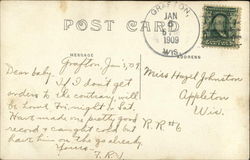 POST CARD
GRAFTON,
JAN
6
1909
WIS.
MESSAGE
ADDRESS
Grafton Jan 5, 09
Dear baby. If I don't get
orders to the contrary will
be home Fri night or Sat.
Have made me pretty good
record & caught cold but
have him on the go already
Yours
Miss Hazel Johnston
Appleton
Wis.
R.R #6